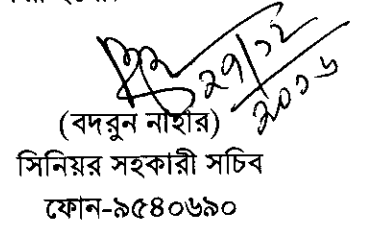 ২৭/১২
২০১৬
(বদরুন নাহার)
সিনিয়র সহকারী সচিব
ফোন-৯৫৪০৬৯০